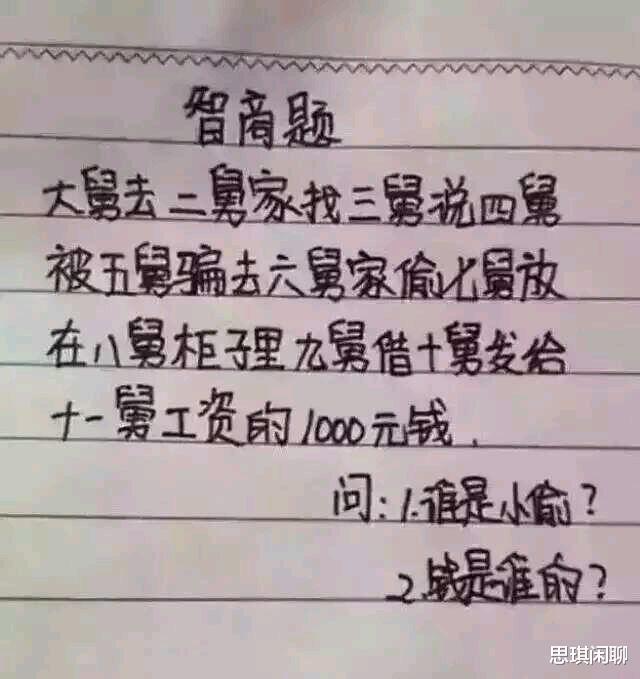 智商题
大舅去二舅家找三舅说四舅
被五舅骗去六舅家偷七舅放
在八舅柜子里九舅借十舅发给
十一舅工资的1000元钱.
问:1.谁是小偷?
2.钱是谁的?
思琪闲聊